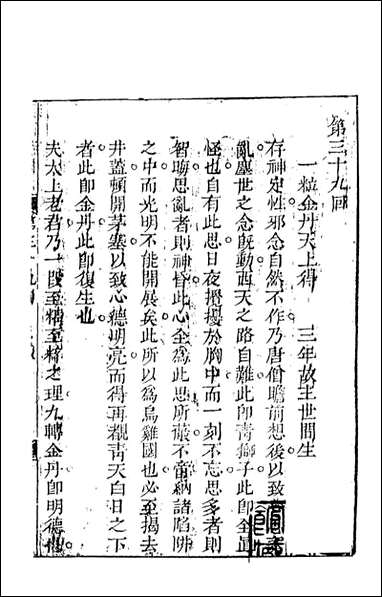 第三十九回
一粒金丹天上得　三年故主世間生
存神定性邪念自然不作乃唐僧瞻前想後以致
亂塵世之念旣動西天之路自難此卽靑獅子此卽全眞
怪也自有此思日夜擾擾於胸中而一刻不忘思多者則
智晦思亂者則神昏此心全爲此思所蔽不啻納諸陷阱
之中而光明不能開展矣此所以爲烏雞國也必至揭去
井蓋頓開茅塞以致心德明亮而得再覩靑天白日之下
者此卽金丹此卽復生也
夫太上老君乃一段至精至粹之理九轉金丹卽明德也